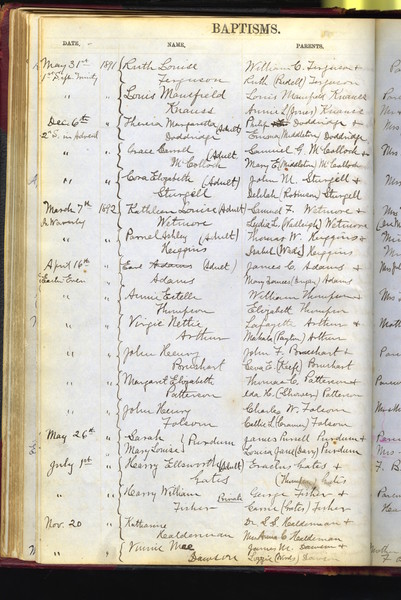 BAPTISMS.
DATE, NAME, PARENTS,
May 31st 1891 Ruth Louise William E. Ferguson &
1st Aft Trinity Ferguson Ruth (Bidell) Ferguson
" Louis Mansfield Louis Mansfield Krauss
Krauss Annie L (Jones) Krauss
Dec. 6th Theresa Margaretta Philip Doddridge &
2d S. in Advent Doddridge (Adult) Emma (Middleton) Doddridge
" Grace Carroll Samuel G. McColloch &
McColloch (Adult) Mary E (Middleton) McColloch
" Eva Elizabeth (Adult) John M. Sturgell &
Sturgell Delilah (Robinson) Sturgell
March 7th 1892 Kathleen Louise (Adult) Samuel F. Wetmore &
Wetmore Lydia L. Wetmore
" Ashley (Adult) Thomas W. Huggins &
Huggins Isabel (Wade) Huggins
April 16th Earl Adams (Adult) James C. Adams &
Easter Even Adams Mary Adams
" Annie Estella William Thompson &
Thompson Elizabeth Thompson
" Virgie Nettie Lafayette Arthur &
Arthur Mahala (Payton) Arthur
" John Henry John F. Bouchart &
Bouchart Eva E. (Keefe) Bouchart
" Margaret Elizabeth Thomas C. Patterson &
Patterson Ida H. Patterson
" John Henry Charles W. Folsom
Folsom Callie L. Folsom
May 26th Sarah James Purnell Purdum &
" Mary Louise } Purdum Louisa Jane (Barr) Purdum
July 1st Harry Ellsworth (Adult) Erastus Gates &
Gates (Thompson) Gates
" Harry William Private George Fisher &
Fisher Carrie (Gates) Fisher
Nov. 20 Katharine Dr. S. S. Halderman &
Halderman Mrs Anna C Halderman
" Vinnie Mae James M. Dawson &
Dawson Lizzie (Woods) Dawson